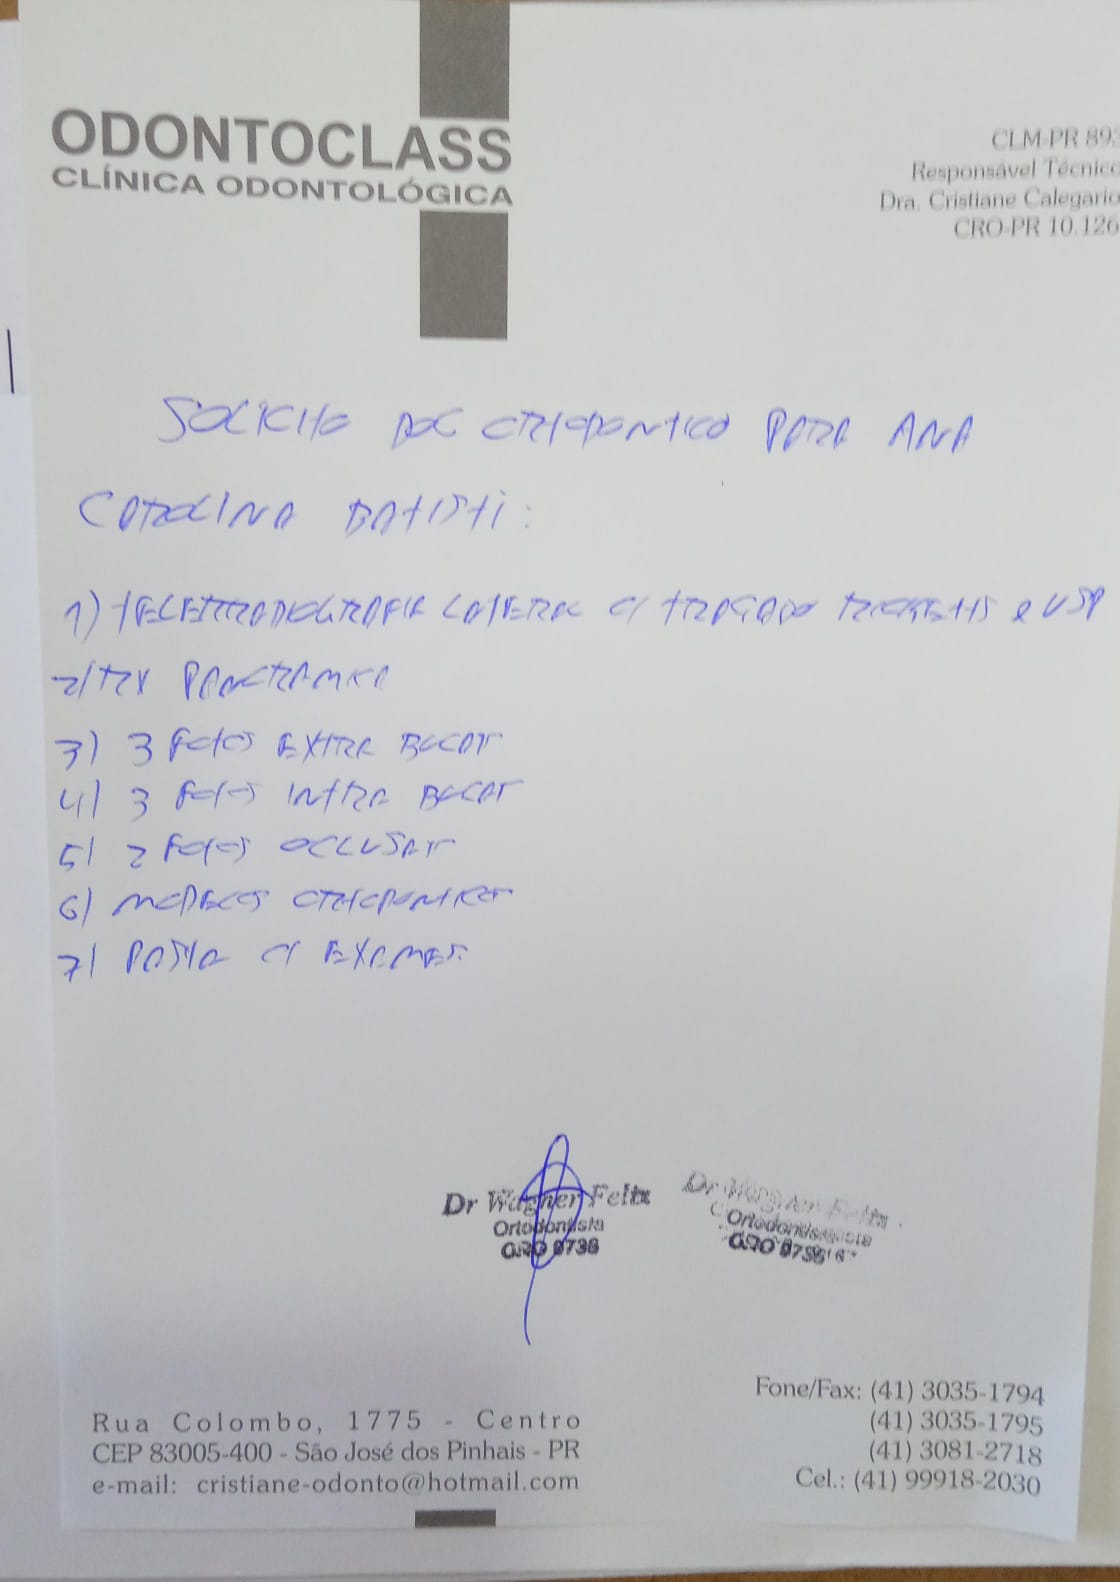 ODONTOCLASS
CLÍNICA ODONTOLÓGICA
CLM-PR 893
Responsável Técnico
Dra. Cristiane Calegario
CRO-PR 10.126
SOLICITO DOC ORTODONTICO PARA ANA
CAROLINA BATISTI:
1) TELERRADIOGRAFIA LATERAL C/ TRAÇADO e USP
2) RX PANORAMICA
3) 3 FOTOS EXTRA BUCAL
4) 3 FOTOS INTRA BUCAL
5) 2 FOTOS OCLUSAL
6) MODELOS ORTODONTICOS
7) PASTA C/ EXAMES.
Dr Wagner Felix
Ortodontista
CRO 9736
Dr Wagner Felix
Ortodontista
CRO
Rua Colombo, 1775 - Centro
CEP 83005-400 - São José dos Pinhais - PR
e-mail: cristiane-odonto@hotmail.com
Fone/Fax: (41) 3035-1794
(41) 3035-1795
(41) 3081-2718
Cel.: (41) 99918-2030